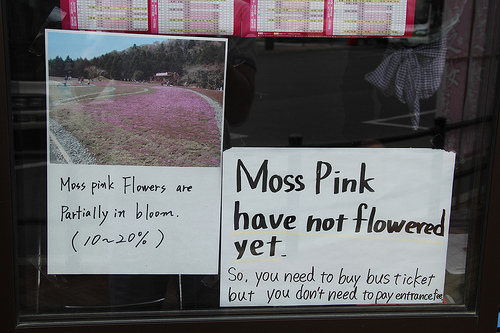 Moss pink Flowers are
Partially in bloom.
(10~20%)
Moss Pink
have not flowered
yet.
So, you need to buy bus ticket
but you don't need to pay entrance fee